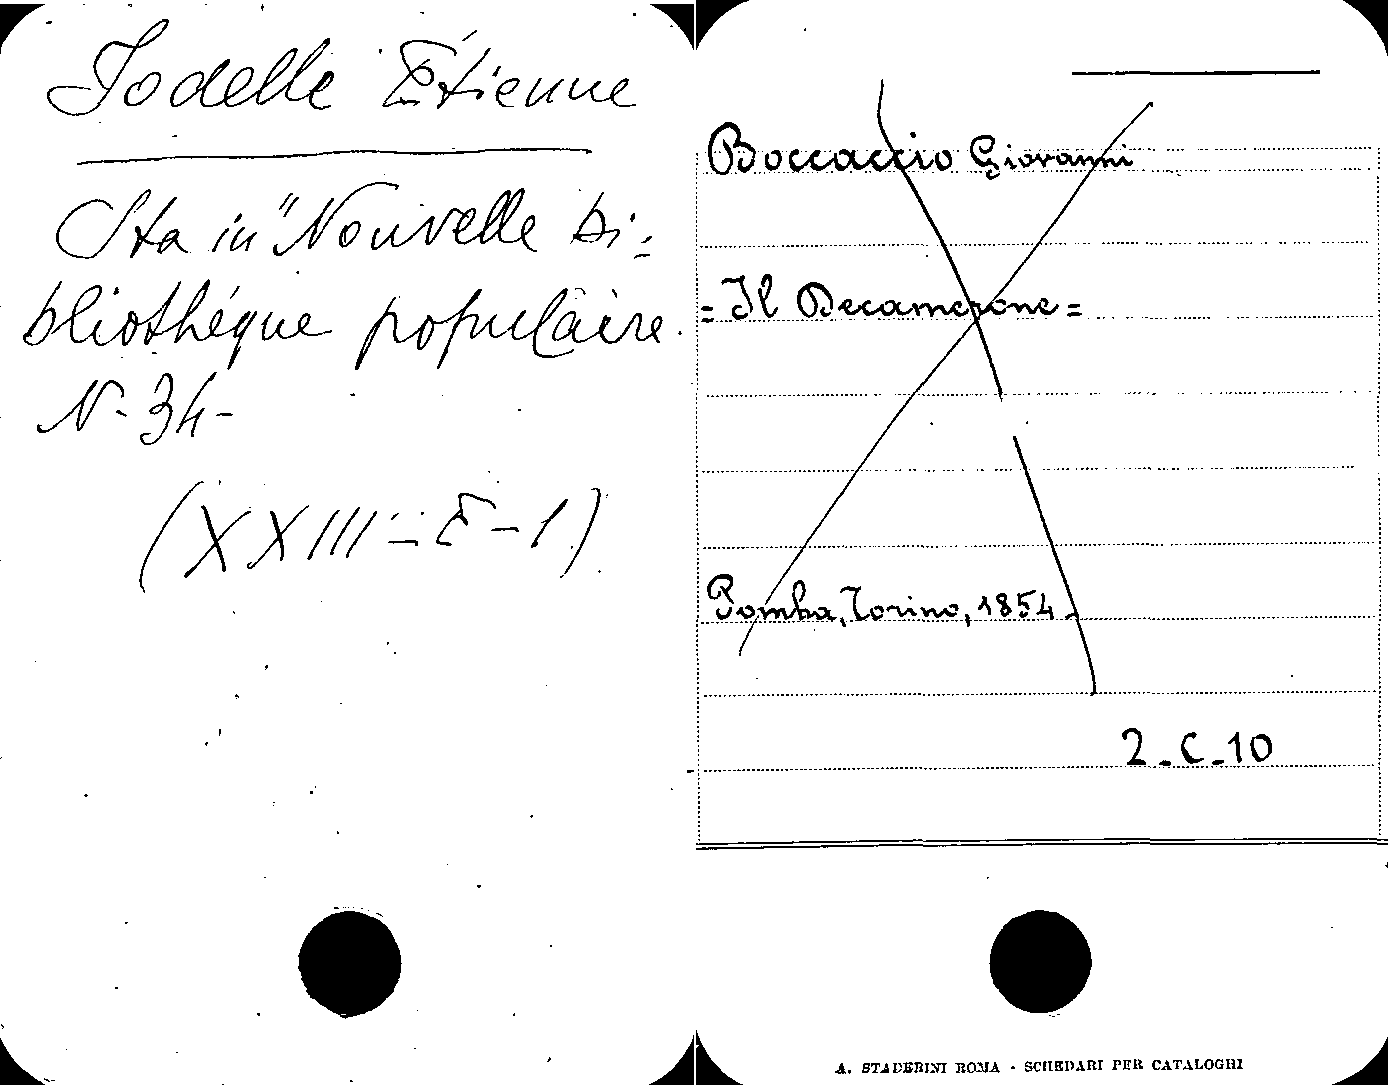 Jodelle Étienne
Sta in "Nouvelle bi=
bliothéque populaire.
N- 34-
(XXIII-E-1)
Boccaccio Giovanni
=Il Decamerone=
Pomba, Torino, 1854-
2-C-10
A. STADERINI ROMA - SCHEDARI PER CATALOGHI